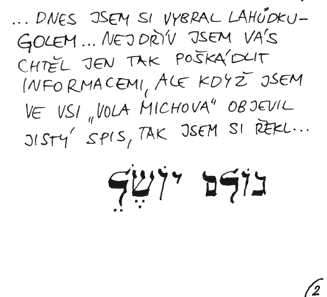 ... DNES JSEM SI VYBRAL LAHŮDKU-
GOLEM... NEJDŘÍV JSEM VÁS
CHTĚL JEN TAK POŠKÁDLIT
INFORMACEMI, ALE KDYŽ JSEM
VE VSI „VOLA MICHOVA" OBJEVIL
JISTÝ SPIS, TAK JSEM SI ŘEKL...
2